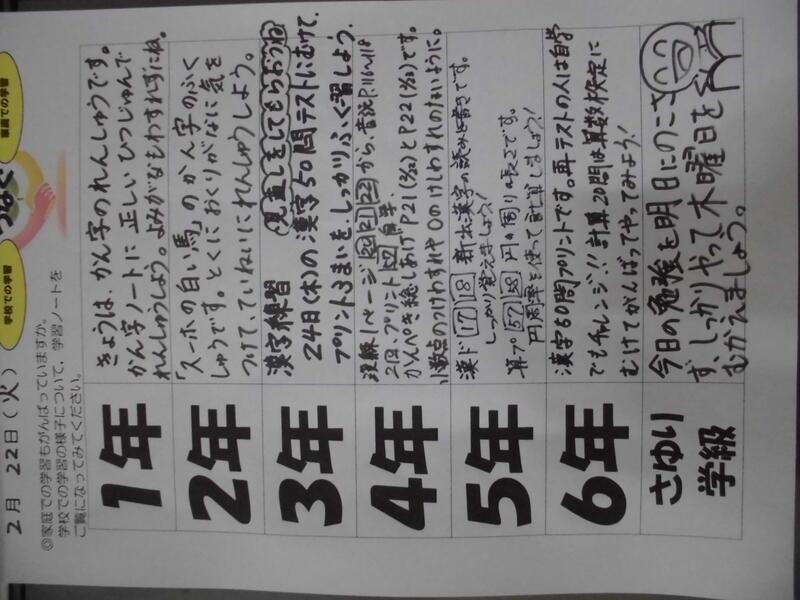 家庭での学習
つなぐ
学校での学習
2月 22日(火)
◎家庭での学習もがんばっていますか。
学校での学習の様子について、学習ノートを
ご覧になってみてください。
1年
きょうは、かん字のれんしゅうです。
かん字ノートに正しいひつじゅんで
れんしゅうしよう。よみがなもわすれずにね。
2年
「スーホの白い馬」のかん字のふく
しゅうです。とくにおくりがなに気を
つけて、ていねいにれんしゅうしよう。
3年
漢字練習 見直しをしてもらおうね
24日(木)の漢字50問テストにむけて、
プリント3まいをしっかりふく習しよう。
4年
漢練1ページ 20 21 22 から、音読P.116~118
2回、プリント
かんぺき総しあげP21(2/22)とP22(2/23)です。
小数点のつけわすれや0のけしわすれのないように。
5年
漢ド 17 18 新出漢字の読みと書きです。
しっかり覚えましょう!
算プ 57 58 円の周りの長さです。
円周率を使って計算しましょう!
6年
漢字50問プリントです。再テストの人は自学
でもチャレンジ!!計算20問は算数検定に
むけてがんばってやってみよう!
さゆり
学級
今日の勉強を明日にのこさ
ず、しっかりやって木曜日を
むかえましょう。